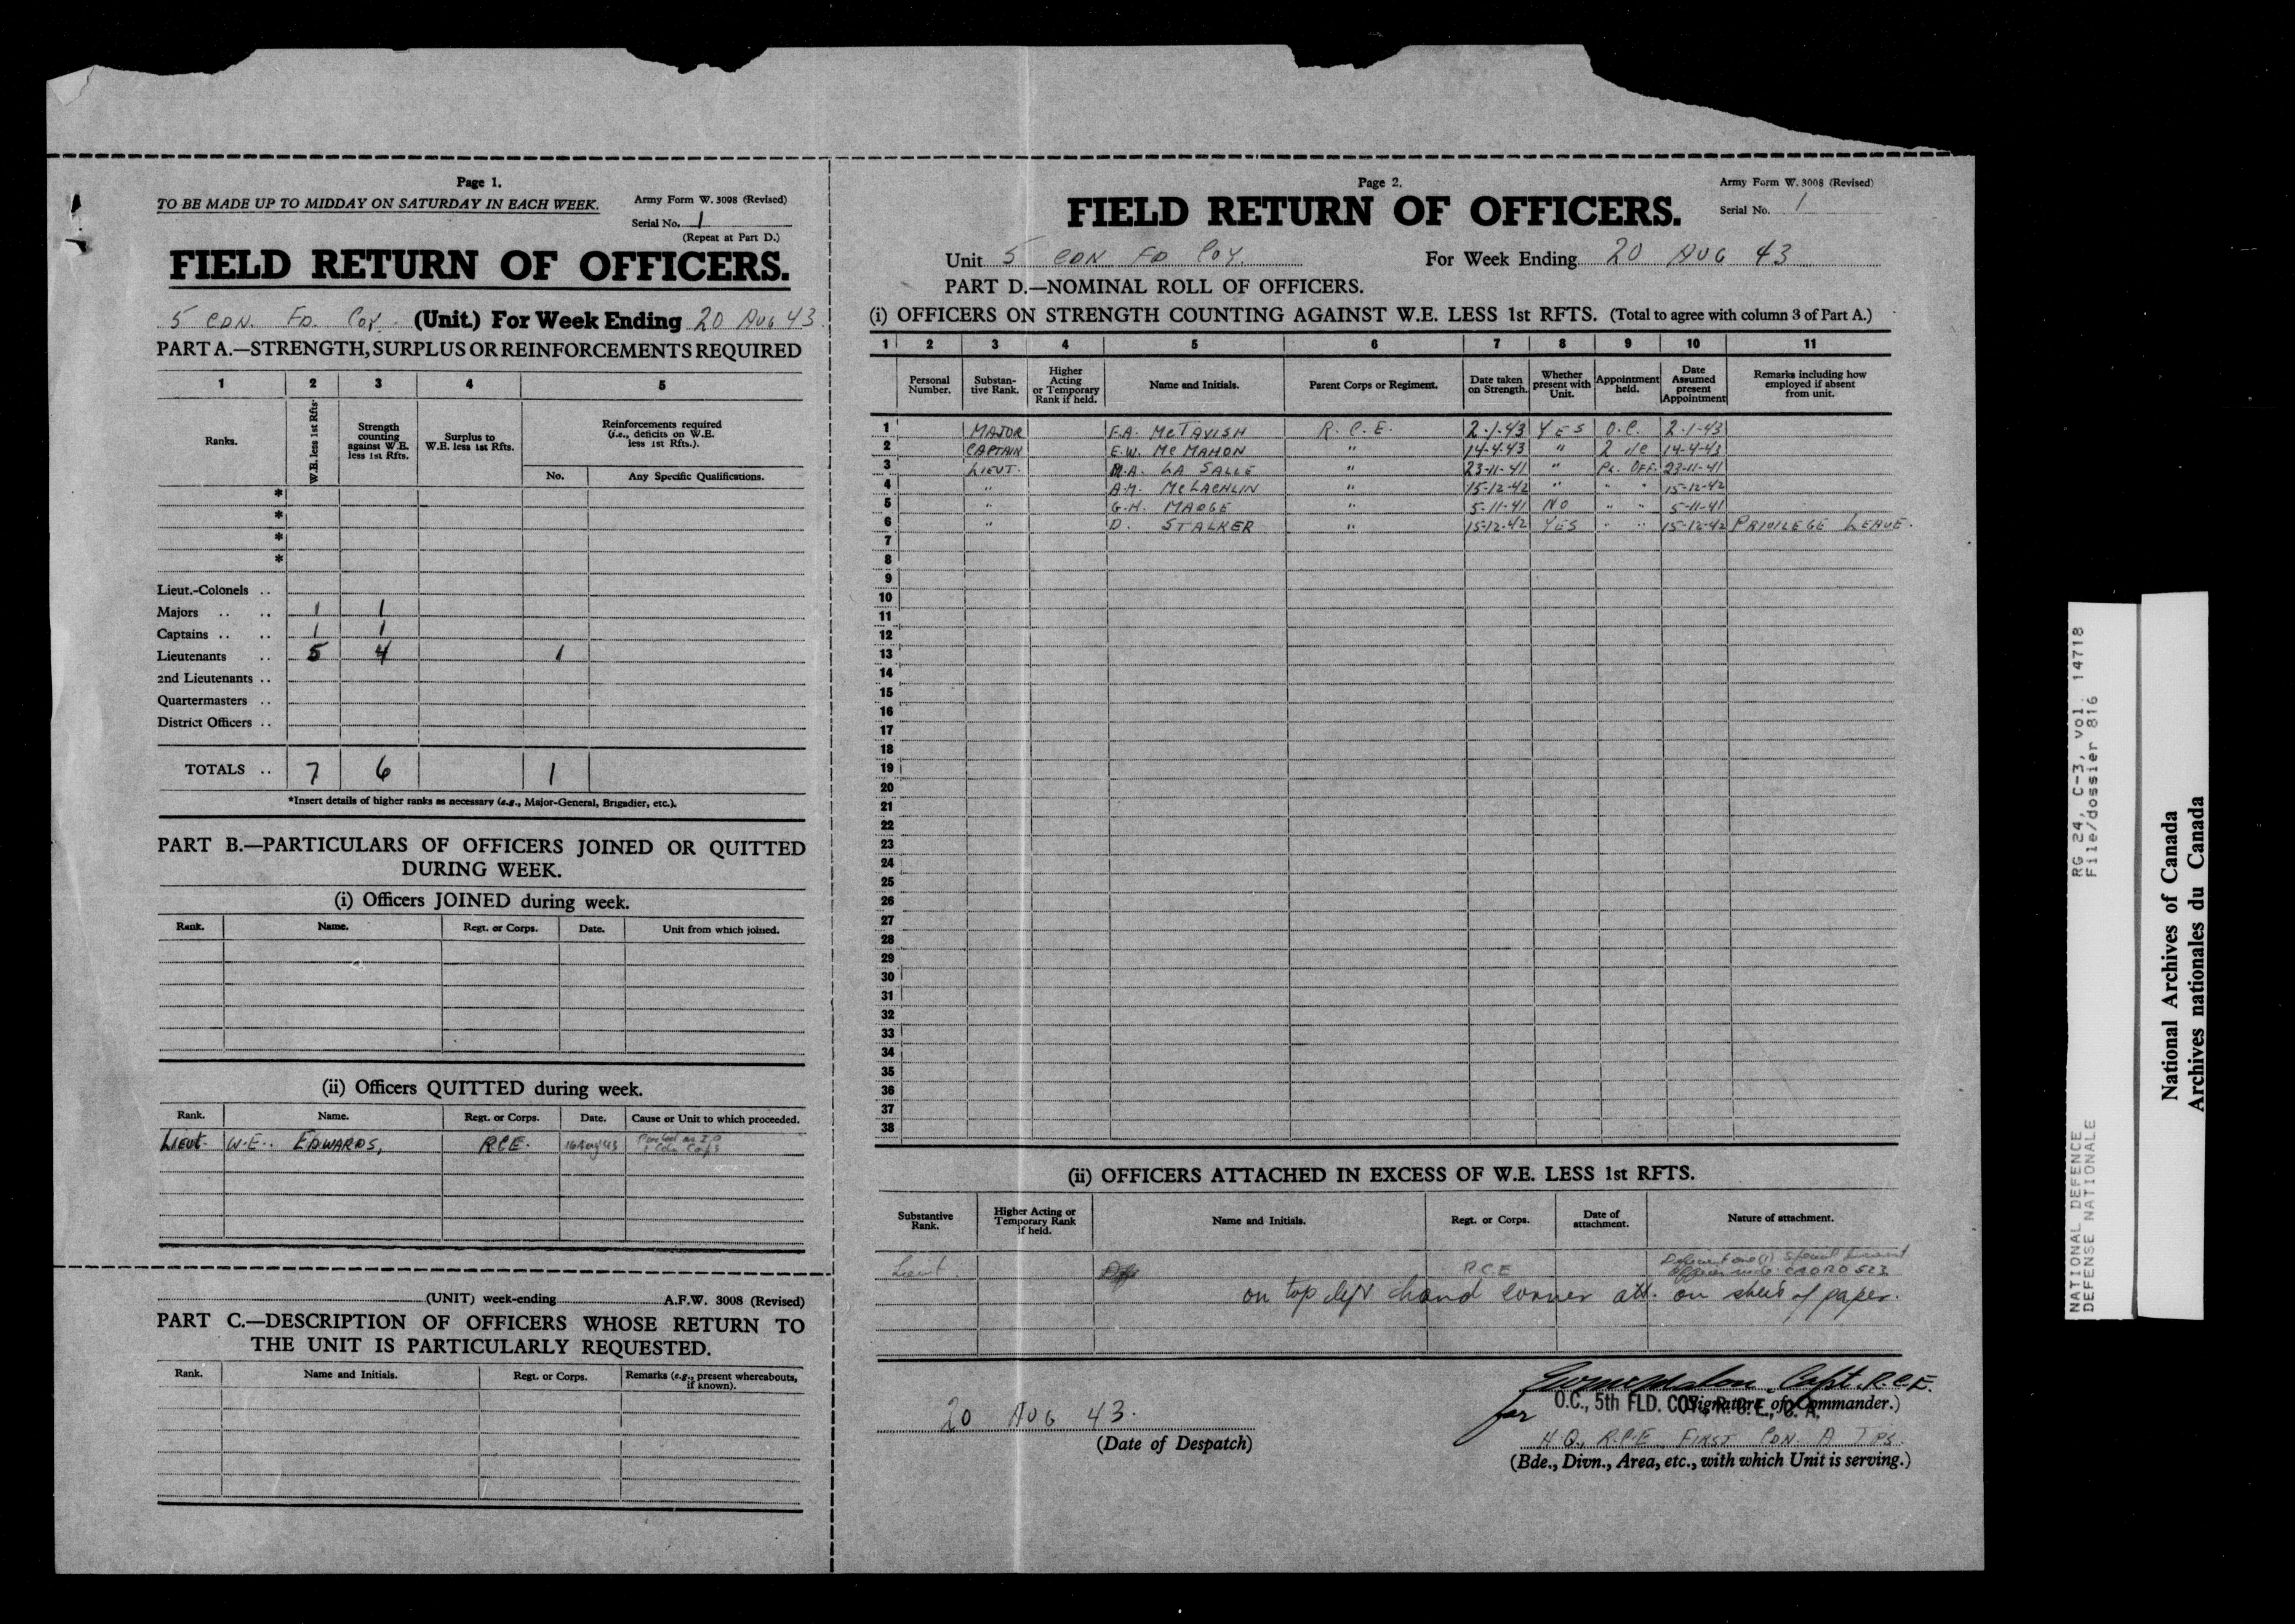 Page 1.
TO BE MADE UP TO MIDDAY ON SATURDAY IN EACH WEEK.
Army Form W. 3008 (Revised)
Serial No. 1
(Repeat at Part D.)
FIELD RETURN OF OFFICERS.
5 CDN. FD. COY. (Unit.) For Week Ending 20 AUG 43
PART A.—STRENGTH, SURPLUS OR REINFORCEMENTS REQUIRED
1 2 3 4 5
Ranks. W.E. less 1st Rfts. Strength counting against W.E. less 1st Rfts. Surplus to W.E. less 1st Rfts. Reinforcements required (i.e., deficits on W.E. less 1st Rfts.).
No. Any Specific Qualifications.
*
*
*
*
Lieut.-Colonels ..
Majors .. .. 1 1
Captains .. .. 1 1
Lieutenants .. 5 4 1
2nd Lieutenants ..
Quartermasters ..
District Officers ..
TOTALS .. 7 6 1
*Insert details of higher ranks as necessary (e.g., Major-General, Brigadier, etc.).
PART B.—PARTICULARS OF OFFICERS JOINED OR QUITTED
DURING WEEK.
(i) Officers JOINED during week.
Rank. Name. Regt. or Corps. Date. Unit from which joined.
(ii) Officers QUITTED during week.
Rank. Name. Regt. or Corps. Date. Cause or Unit to which proceeded.
LIEUT. W.E. EDWARDS, RCE. 16 Aug 43 Posted as I.O
1 Cdn. Corps
(UNIT) week-ending A.F.W. 3008 (Revised)
PART C.—DESCRIPTION OF OFFICERS WHOSE RETURN TO
THE UNIT IS PARTICULARLY REQUESTED.
Rank. Name and Initials. Regt. or Corps. Remarks (e.g., present whereabouts, if known).
Page 2.
Army Form W. 3008 (Revised)
FIELD RETURN OF OFFICERS.
Serial No. 1
Unit 5 CDN FD COY. For Week Ending 20 AUG 43
PART D.—NOMINAL ROLL OF OFFICERS.
(i) OFFICERS ON STRENGTH COUNTING AGAINST W.E. LESS 1st RFTS. (Total to agree with column 3 of Part A.)
1 2 3 4 5 6 7 8 9 10 11
Personal Number. Substantive Rank. Higher Acting or Temporary Rank if held. Name and Initials. Parent Corps or Regiment. Date taken on Strength. Whether present with Unit. Appointment held. Date Assumed present Appointment Remarks including how employed if absent from unit.
1 MAJOR F.A. MCTAVISH R.C.E. 2-1-43 YES O.C. 2-1-43
2 CAPTAIN E.W. MCMAHON " 14-4-43 " 2 i/c 14-4-43
3 LIEUT. M.A. LA SALLE " 23-11-41 " PL. OFF. 23-11-41
4 " A.M. MCLACHLIN " 15-12-42 " " " 15-12-42
5 " G.H. MADGE " 5-11-41 NO " " 5-11-41
6 " D. STALKER " 15-12-42 YES " " 15-12-42 PRIVILEGE LEAVE.
7
8
9
10
11
12
13
14
15
16
17
18
19
20
21
22
23
24
25
26
27
28
29
30
31
32
33
34
35
36
37
38
(ii) OFFICERS ATTACHED IN EXCESS OF W.E. LESS 1st RFTS.
Substantive Rank. Higher Acting or Temporary Rank if held. Name and Initials. Regt. or Corps. Date of attachment. Nature of attachment.
Lieut. R.C.E
on top left hand corner att. on sheet of paper.
Capt. R.C.E.
for O.C., 5th FLD. COY., R. C. E., C. A.
(Signature of Commander.)
20 AUG 43.
(Date of Despatch)
H.Q., R.C.E. FIRST CDN. A TPS.
(Bde., Divn., Area, etc., with which Unit is serving.)
NATIONAL DEFENCE RG 24, C-3, vol. 14718
DEFENSE NATIONALE File/dossier 816
National Archives of Canada
Archives nationales du Canada